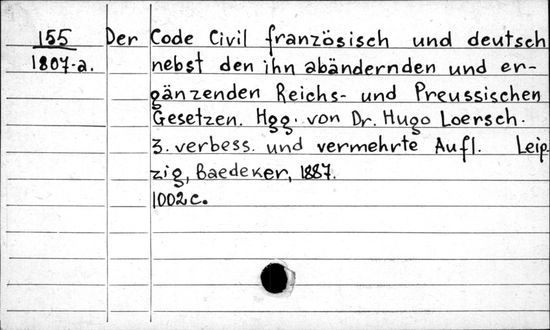 155 Der Code Civil französisch und deutsch
1807-a. nebst den ihn abändernden und er-
gänzenden Reichs- und Preussischen
Gesetzen. Hgg. von Dr. Hugo Loersch.
3. verbess. und vermehrte Aufl. Leip
zig, Baedeker, 1887.
1002c.